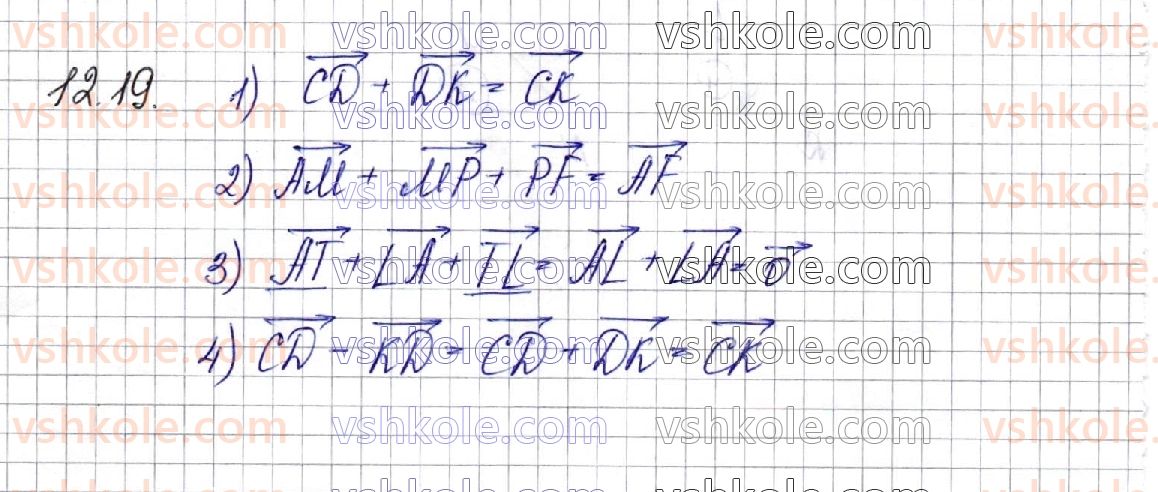 vshkole.com vshkole.com vshkole.com vshkole.com
12.19. 1) $\overrightarrow{CD} + \overrightarrow{DK} = \overrightarrow{CK}$
vshkole.com vshkole.com vshkole.com vshkole.com
2) $\overrightarrow{AM} + \overrightarrow{MP} + \overrightarrow{PF} = \overrightarrow{AF}$
vshkole.com vshkole.com vshkole.com vshkole.com
3) $\underline{\overrightarrow{AT}} + \overrightarrow{LA} + \underline{\overrightarrow{TL}} = \overrightarrow{AL} + \overrightarrow{LA} = \overrightarrow{0}$
vshkole.com vshkole.com vshkole.com vshkole.com
4) $\overrightarrow{CD} - \overrightarrow{KD} = \overrightarrow{CD} + \overrightarrow{DK} = \overrightarrow{CK}$
vshkole.com vshkole.com vshkole.com vshkole.com
vshkole.com vshkole.com vshkole.com vshkole.com